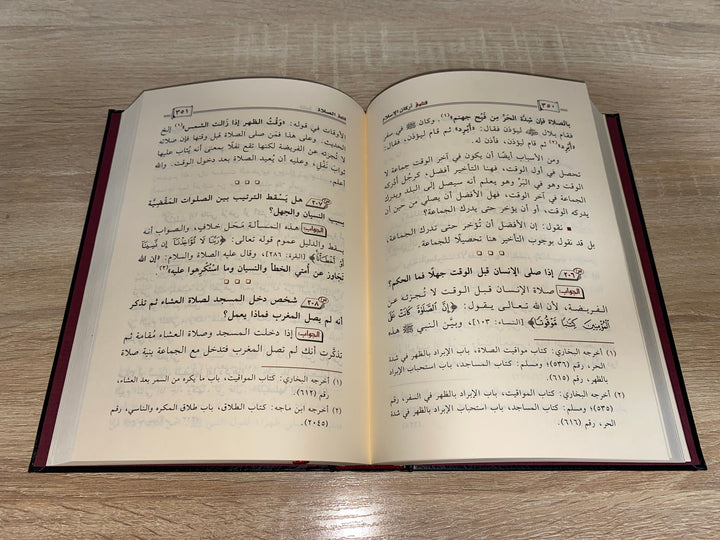 ٣٥٠ فتاوى أركان الإسلام
بالصلاة فإن شدَّة الحرِّ من فَيْح جهنم»(١)، وكان ﷺ في سفر
فقام بلال ليؤذن فقال: «أبْرِد» ثم قام ليؤذن، فقال:
«أبْرِد»(٢) ثم قام ليؤذن، فأذن له.
ومن الأسباب أيضًا أن يكون في آخر الوقت جماعة لا
تحصل في أول الوقت، فهنا التأخير أفضل، كرجُل أدركه
الوقت وهو في البرِّ وهو يعلم أنه سيصل إلى البلد ويدرك
الجماعة في آخر الوقت، فهل الأفضل أن يصلي من حين أن
يدركه الوقت، أو أن يؤخر حتى يدرك الجماعة؟
نقول: إن الأفضل أن تؤخر حتى تدرك الجماعة،
بل قد نقول بوجوب التأخير هنا تحصيلًا للجماعة.
س٢٠٦ إذا صلى الإنسان قبل الوقت جهلًا فما الحكم؟
الجواب صلاة الإنسان قبل الوقت لا تُجزئه عن
الفريضة، لأن الله تعالى يقول: ﴿إِنَّ الصَّلَاةَ كَانَتْ عَلَى
الْمُؤْمِنِينَ كِتَابًا مَّوْقُوتًا﴾ [النساء: ١٠٣]، وبيَّن النبي ﷺ هذه
(١) أخرجه البخاري: كتاب مواقيت الصلاة، باب الإبراد بالظهر في شدة
الحر، رقم (٥٣٦)؛ ومسلم: كتاب المساجد، باب استحباب الإبراد
بالظهر، رقم (٦١٥).
(٢) أخرجه البخاري: كتاب المواقيت، باب الإبراد بالظهر في السفر، رقم
(٥٣٥)؛ ومسلم: كتاب المساجد، باب استحباب الإبراد بالظهر في شدة
الحر، رقم (٦١٦).
فقه الصلاة ٣٥١
الأوقات في قوله: «وَقْتُ الظهر إذا زَالَت الشمس»(١) إلخ
الحديث. وعلى هذا فمن صلى الصلاة قبل وقتها فإن صلاته
لا تُجزئه عن الفريضة لكنها تقع نفلًا بمعنى أنه يُثاب عليها
ثواب نَفْل، وعليه أن يُعيد الصلاة بعد دخول الوقت. والله
أعلم.
س٢٠٧ هل يَسقط الترتيب بين الصلوات المَقْضِيَّة
بسبب النسيان والجهل؟
الجواب هذه المسألة محَل خلافٍ، والصواب أنه
يسقط والدليل عموم قوله تعالى: ﴿رَبَّنَا لَا تُؤَاخِذْنَا إِن نَّسِينَا
أَوْ أَخْطَأْنَا﴾ [البقرة: ٢٨٦]، وقال عليه الصلاة والسلام: «إن الله
تَجَاوَز عن أمتي الخطأ والنسيان وما استُكْرِهوا عليه»(٢)
س٢٠٨ شخص دخل المسجد لصلاة العشاء ثم تذكر
أنه لم يصل المغرب فماذا يعمل؟
الجواب إذا دخلت المسجد وصلاة العشاء مُقامة ثم
تذكرت أنك لم تصل المغرب فتدخل مع الجماعة بنية صلاة
(١) أخرجه البخاري: كتاب المواقيت، باب ما يكره من السمر بعد العشاء،
رقم (٦١٢).
(٢) أخرجه ابن ماجه: كتاب الطلاق، باب طلاق المكره والناسي، رقم
(٢٠٤٥).